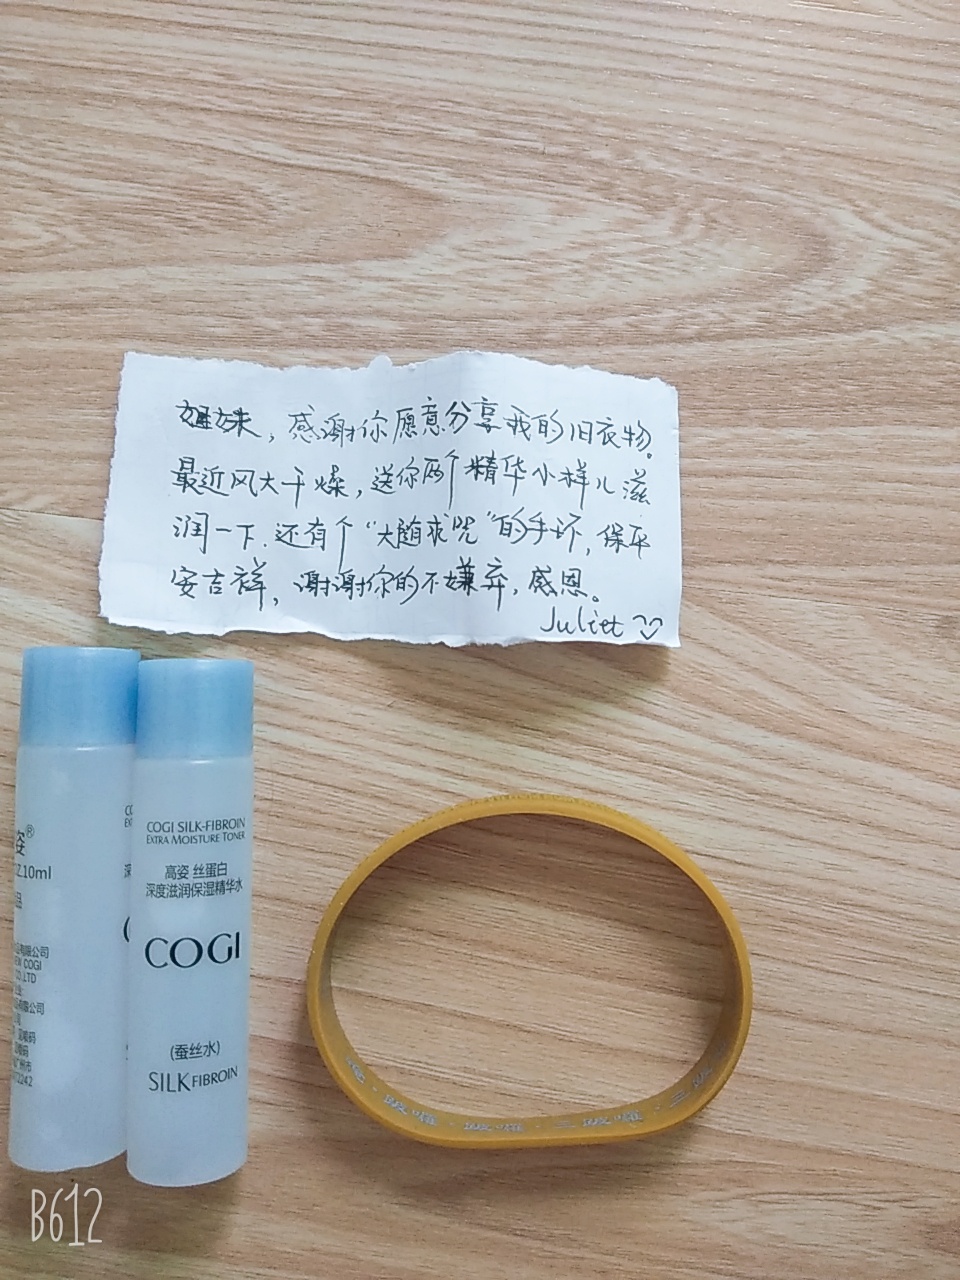 姐妹,感谢你愿意分享我的旧衣物。
最近风大干燥,送你两个精华小样儿滋
润一下.还有个“大随求咒”的手环,保平
安吉祥,谢谢你的不嫌弃,感恩。
Juliet
姿®
Z.10ml
品
有限公司
COGI
CO.,LTD
有限公司
广州市
COGI SILK-FIBROIN
EXTRA MOISTURE TONER
高姿 丝蛋白
深度滋润保湿精华水
COGI
(蚕丝水)
SILK FIBROIN
B612